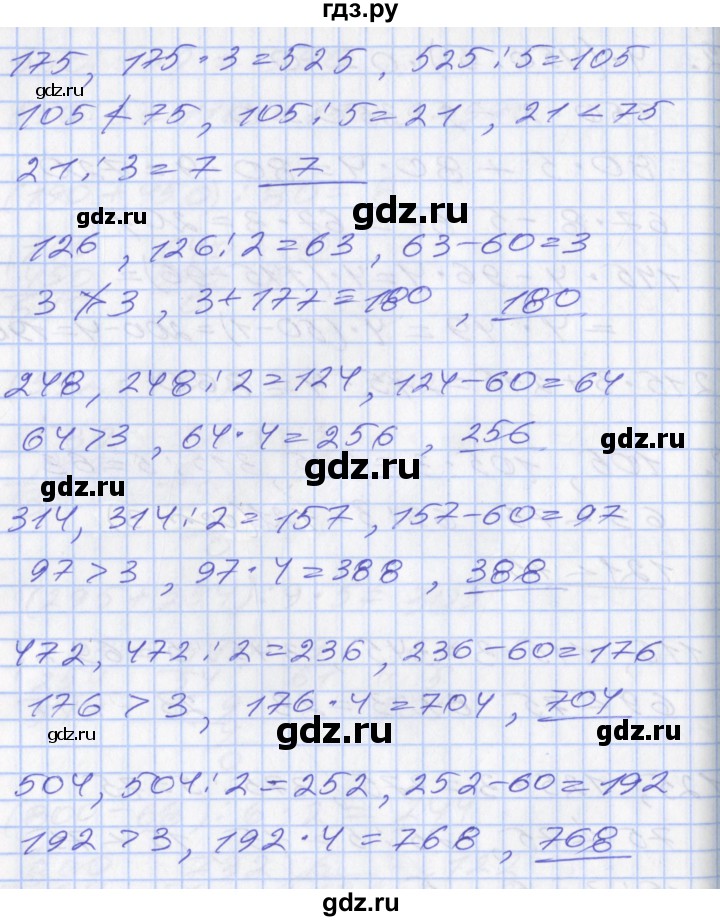 гдз.ру
175, 175·3=525, 525:5=105
gdz.ru
105≮75, 105:5=21, 21<75
gdz.ru
21:3=7 7
gdz.ru
gdz.ru
126, 126:2=63, 63-60=3
3≯3, 3+177=180, 180
248, 248:2=124, 124-60=64
64>3, 64·4=256, 256
gdz.ru
gdz.ru
gdz.ru
314, 314:2=157, 157-60=97
97>3, 97·4=388, 388
472, 472:2=236, 236-60=176
176>3, 176·4=704, 704
gdz.ru
gdz.ru
gdz.ru
504, 504:2=252, 252-60=192
192>3, 192·4=768, 768
gdz.ru